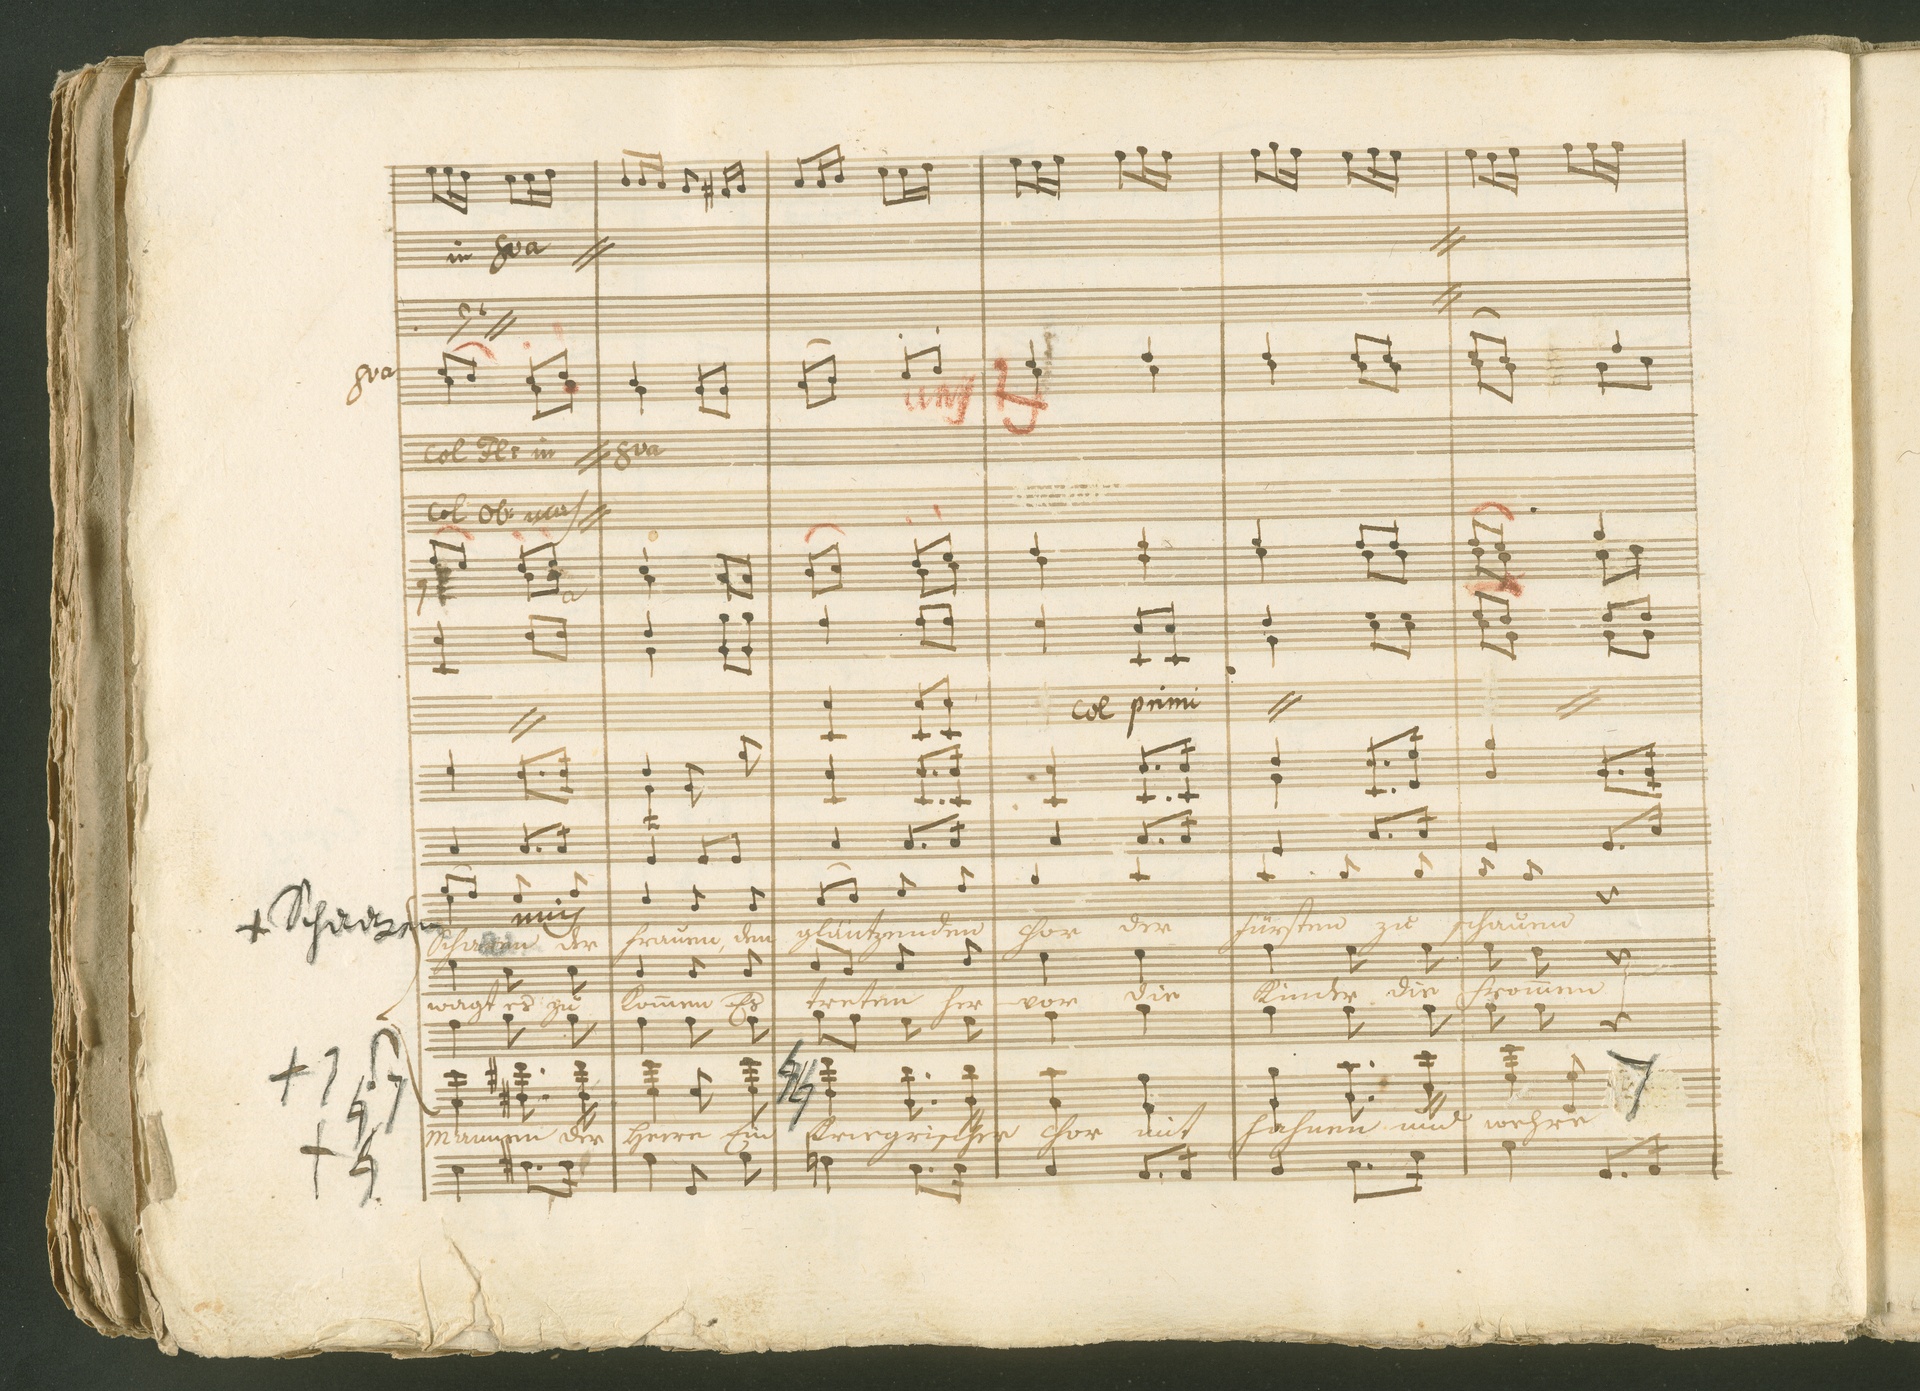 in 8va
8va
col Flt in 8va
Col Ob: unis
col primi
+ Schaaren
unis
Scharen der Frauen, den gläntzenden Chor der Fürsten zu schauen
wagt es zu kom̄en Es treten her vor die Kinder die from̄en
+ 7
Mannen der Heere Ein Kriegrischer Chor mit Fahnen und wehre